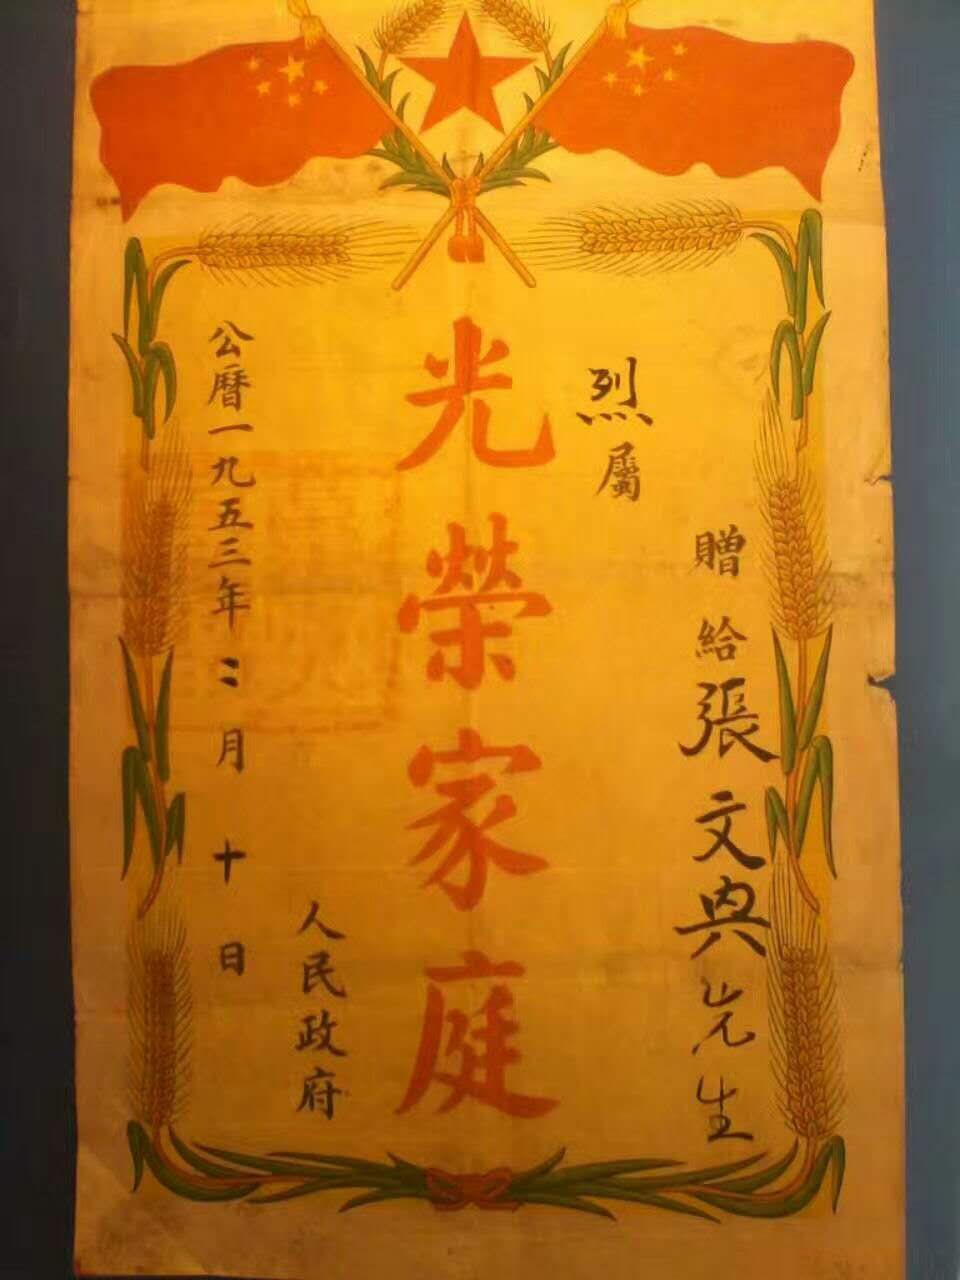 贈給張文典先生
烈屬
光榮家庭
人民政府
公曆一九五三年二月十日